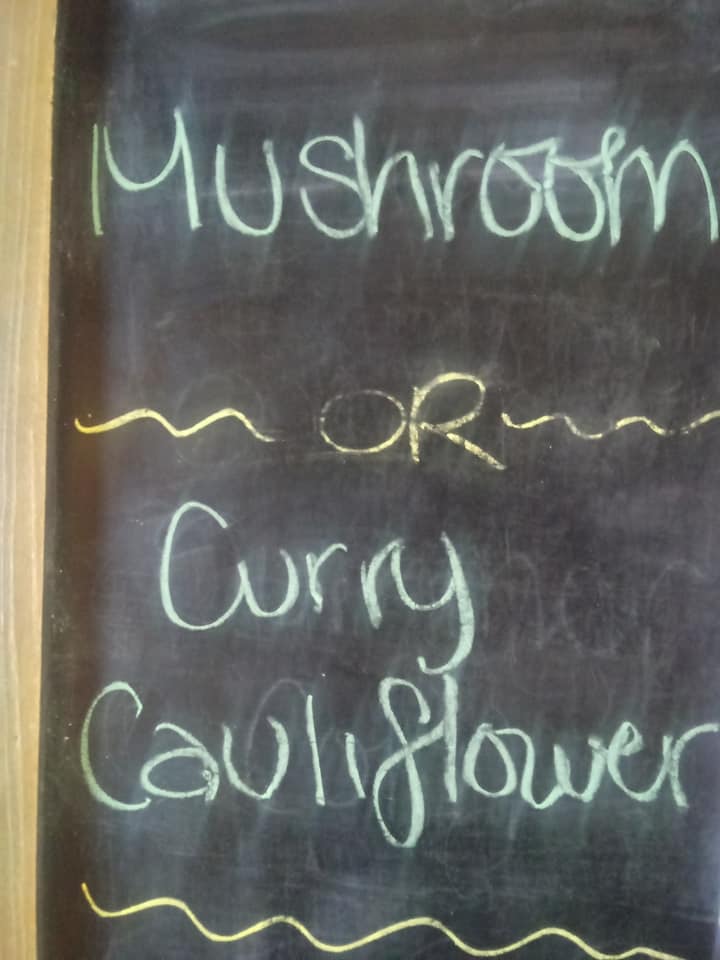 Mushroom
OR
Curry
Cauliflower